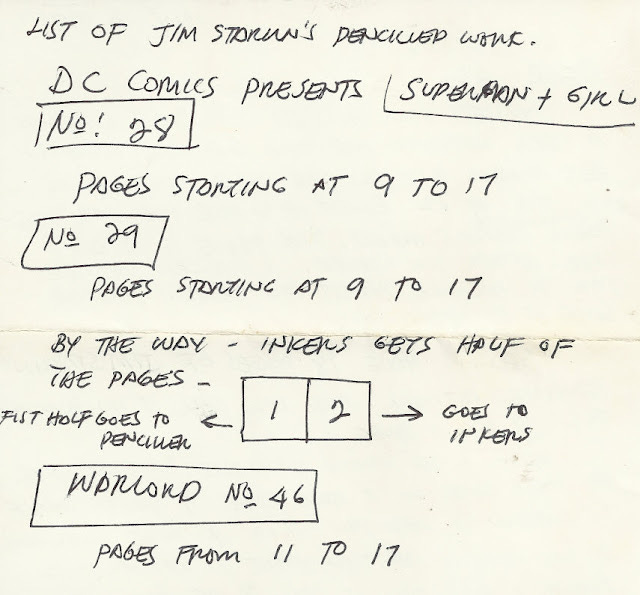 LIST OF JIM STARLIN'S PENCILLED WORK.
DC COMICS PRESENTS SUPERMAN + GIRL
No! 28
PAGES STARTING AT 9 TO 17
No 29
PAGES STARTING AT 9 TO 17
BY THE WAY - INKERS GETS HALF OF
THE PAGES -
FIST HALF GOES TO PENCILLER
1 2
GOES TO INKERS
WARLORD No 46
PAGES FROM 11 TO 17